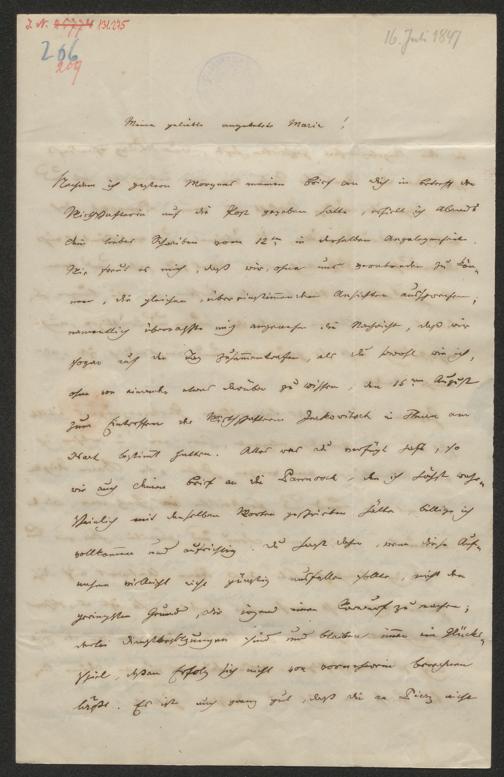 I. N. 131.275
206
209
16. Juli 1847
Meine geliebte angebetete Marie!
Nachdem ich gestern Morgens meinen Brief an dich in betreff der
Wirthschafterin auf die Post gegeben hatte, erhielt ich Abends
dein liebes Schreiben vom 12ten in derselben Angelegenheit.
Wie freut es mich, daß wir, ohne uns verabreden zu kön-
nen, die gleichen, übereinstimmenden Ansichten aussprachen;
namentlich überraschte mich angenehm die Nachricht, daß wir
sogar auf den Tag zusammentrafen, als du sowohl wie ich,
ohne von einander etwas darüber zu wissen, den 16ten August
zum Eintreffen der Wirthschafterin in
bestimmt hatten. Alles was du verfügt hast, so
wie auch deinen Brief an die, den ich höchst wahr-
scheinlich mit denselben Worten geschrieben hätte, billige ich
vollkommen und aufrichtig. Du hast daher, wenn diese Auf-
nahme vielleicht nicht günstig ausfallen sollte, nicht den
geringsten Grund, dir irgend einen Vorwurf zu machen;
derlei sind und bleiben immer ein Glücks-
spiel, dessen Erfolg sich nicht von vornherein berechnen
läßt. Es ist auch ganz gut, daß du nicht